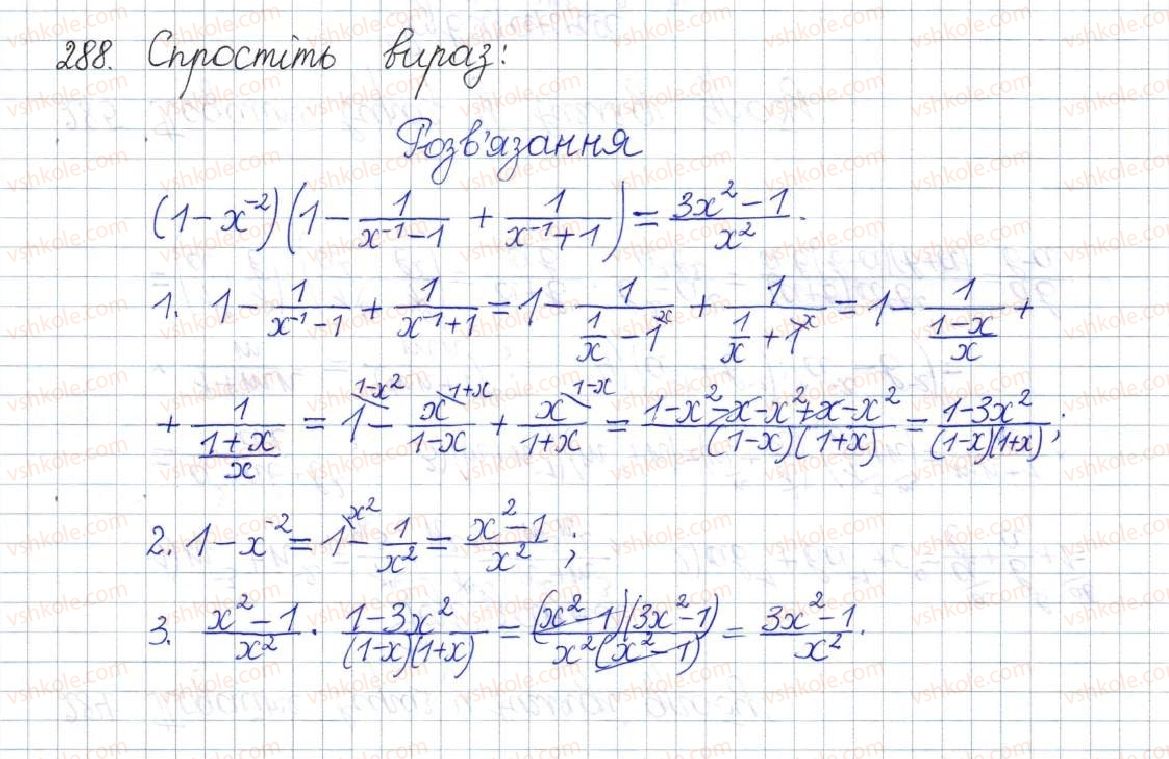 288. Спростіть вираз:
Розв'язання
(1-x⁻²)(1 - 1/(x⁻¹-1) + 1/(x⁻¹+1)) = (3x²-1)/x².
1. 1 - 1/(x⁻¹-1) + 1/(x⁻¹+1) = 1 - 1/(1/x - 1^x) + 1/(1/x + 1^x) = 1 - 1/((1-x)/x) +
+ 1/((1+x)/x) = 1^(1-x²) - x^(1+x)/(1-x) + x^(1-x)/(1+x) = (1-x²-x-x²+x-x²)/((1-x)(1+x)) = (1-3x²)/((1-x)(1+x));
2. 1-x⁻² = 1^(x²) - 1/x² = (x²-1)/x²;
3. (x²-1)/x² · (1-3x²)/((1-x)(1+x)) = (x²-1)(3x²-1)/(x²(x²-1)) = (3x²-1)/x².
vshkole.com